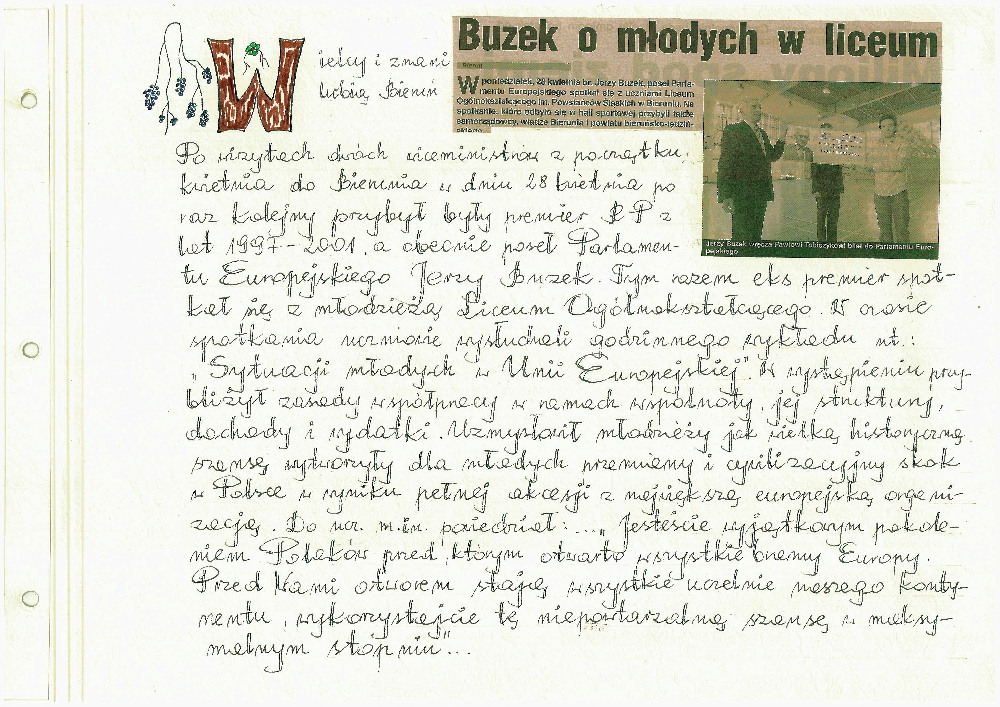 Wielcy i znani
lubią Bieruń
Buzek o młodych w liceum
Bieruń
W poniedziałek, 28 kwietnia br. Jerzy Buzek, poseł Parla-
mentu Europejskiego spotkał się z uczniami Liceum
Ogólnokształcącego im. Powstańców Śląskich w Bieruniu. Na
spotkanie, które odbyło się w hali sportowej przybyli także
samorządowcy, władze Bierunia i powiatu bieruńsko-lędziń-
skiego.
Jerzy Buzek wręcza Pawłowi bilet do Parlamentu Euro-
pejskiego
Po wizytach dwóch viceministrów z początku
kwietnia do Bierunia w dniu 28 kwietnia po
raz kolejny przybył były premier R P z
lat 1997-2001, a obecnie poseł Parlamen-
tu Europejskiego Jerzy Buzek. Tym razem eks premier spot-
kał się z młodzieżą Liceum Ogólnokształcącego. W czasie
spotkania uczniowie wysłuchali godzinnego wykładu nt.:
„Sytuacji młodych w Unii Europejskiej". W wystąpieniu przy-
bliżył zasady współpracy w ramach wspólnoty, jej struktury,
dochody i wydatki. Uzmysłowił młodzieży jak wielką historyczną
szansę wytworzyły dla młodych przemiany i cywilizacyjny skok
w Polsce w wyniku pełnej akcesji z największą europejską organi-
zacją. Do ucz. m.in. powiedział: ... „Jesteście wyjątkowym pokole-
niem Polaków przed którym otwarto wszystkie bramy Europy.
Przed Wami otworem stają wszystkie uczelnie naszego konty-
nentu, wykorzystajcie tę niepowtarzalną szansę w maksy-
malnym stopniu"...